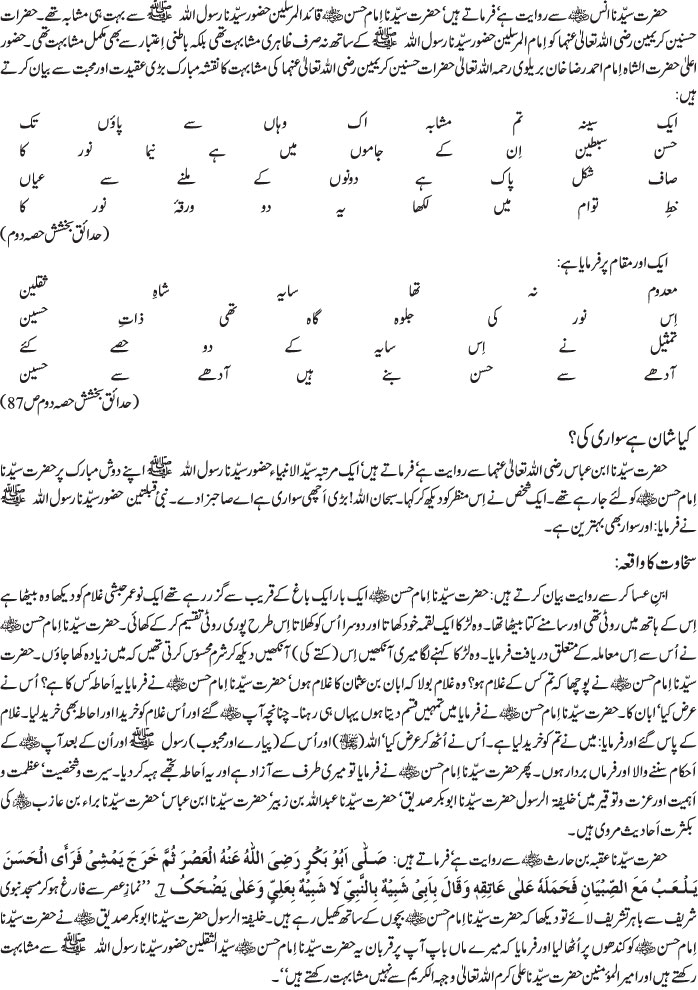 حضرت سیّدنا انس ﷜ سے روایت ہے‘ فرماتے ہیں‘ حضرت سیّدنا اِمام حسن ﷜ قائد المرسلین حضور سیّدنا رسول اللہ ﷺ سے بہت ہی مشابہ تھے۔ حضرات
حسنین کریمین رضی اللہ تعالیٰ عنہما کو اِمام المرسلین حضور سیّدنا رسول اللہ ﷺ کے ساتھ نہ صرف ظاہری مشابہت تھی بلکہ باطنی اِعتبار سے بھی مکمل مشابہت تھی۔ حضور
اعلیٰ حضرت الشاہ اِمام احمد رضا خان بریلوی رحمہ اللہ تعالیٰ حضرات حسنین کریمین رضی اللہ تعالیٰ عنہما کی مشابہت کا نقشہ مبارک بڑی عقیدت اور محبت سے بیان کرتے
ہیں:
ایک سینہ تم مشابہ اک وہاں سے پاؤں تک
حسن سبطین اِن کے جاموں میں ہے نیما نور کا
صاف شکل پاک ہے دونوں کے ملنے سے عیاں
خطِ توام میں لکھا یہ دو ورقۂ نور کا
(حدائق بخشش حصہ دوم)
ایک اور مقام پر فرمایا ہے:
معدوم نہ تھا سایہ شاہِ ثقلین
اِس نور کی جلوہ گاہ تھی ذاتِ حسین
تمثیل نے اِس سایہ کے دو حصے کئے
آدھے سے حسن بنے ہیں آدھے سے حسین
(حدائق بخشش حصہ دوم ص87)
کیا شان ہے سواری کی؟
حضرت سیّدنا ابن عباس رضی اللہ تعالیٰ عنہما سے روایت ہے‘ فرماتے ہیں‘ ایک مرتبہ سیّد الانبیاء حضور سیّدنا رسول اللہ ﷺ اپنے دوش مبارک پر حضرت سیّدنا
اِمام حسن ﷜ کو لئے جا رہے تھے۔ ایک شخص نے اِس منظر کو دیکھ کر کہا۔ سبحان اللہ! بڑی اَچھی سواری ہے اے صاحبزادے۔ نبیٔ قبلتین حضور سیّدنا رسول اللہ ﷺ
نے فرمایا: اور سوار بھی بہترین ہے۔
سخاوت کا واقعہ:
ابنِ عساکر سے روایت بیان کرتے ہیں: حضرت سیّدنا اِمام حسن ﷜ ایک بار ایک باغ کے قریب سے گزر رہے تھے ایک نو عمر حبشی غلام کو دیکھا وہ بیٹھا ہے
اِس کے ہاتھ میں روٹی تھی اور سامنے کتا بیٹھا تھا۔ وہ لڑکا ایک لقمہ خود کھاتا اور دوسرا اُس کو کھلاتا اِس طرح پوری روٹی تقسیم کر کے کھائی۔ حضرت سیّدنا اِمام حسن ﷜
نے اُس سے اِس معاملہ کے متعلق دریافت فرمایا۔ وہ لڑکا کہنے لگا میری آنکھیں اِس (کتے کی) آنکھیں دیکھ کر شرم محسوس کرتی تھیں کہ میں زیادہ کھا جاؤں۔ حضرت
سیّدنا اِمام حسن ﷜ نے پوچھا کہ تم کس کے غلام ہو؟ وہ غلام بولا کہ ابان بن عثمان کا غلام ہوں‘ حضرت سیّدنا اِمام حسن ﷜ نے فرمایا یہ اَحاطہ کس کا ہے؟ اُس نے
عرض کیا‘ ابان کا۔ حضرت سیّدنا اِمام حسن ﷜ نے فرمایا میں تمہیں قسم دیتا ہوں یہاں ہی رہنا۔ چنانچہ آپ ﷜ گئے اور اُس غلام کو خریدا اور احاطہ بھی خرید لیا۔ غلام
کے پاس گئے اور فرمایا: میں نے تم کو خرید لیا ہے۔ اُس نے اُٹھ کر عرض کیا‘ اللہ (﷯) اور اُس کے (پیارے اور محبوب) رسول ﷺ اور اُن کے بعد آپ ﷜ کے
اَحکام سننے والا اور فرماں بردار ہوں۔ پھر حضرت سیّدنا اِمام حسن ﷜ نے فرمایا تو میری طرف سے آزاد ہے اور یہ اَحاطہ تجھے ہبہ کر دیا۔ سیرت و شخصیت‘ عظمت و
اہمیت اور عزت و توقیر میں‘ خلیفۃ الرسول حضرت سیّدنا ابوبکر صدیق‘ حضرت سیّدنا عبداللہ بن زبیر‘ حضرت سیّدنا ابن عباس‘ حضرت سیّدنا براء بن عازب ﷢ کی
بکثرت اَحادیث مروی ہیں۔
حضرت سیّدنا عقبہ بن حارث ﷜ سے روایت ہے‘ فرماتے ہیں: صَلّٰی اَبُوْ بَکْرٍ رَضِیَ اللّٰہُ عَنْہُ الْعَصْرَ ثُمَّ خَرَجَ یَمْشِیْ فَرَأَی الْحَسَنَ
یَلْعَبُ مَعَ الصِّبْیَانِ فَحَمَلَہٗ عَلٰی عَاتِقِہٖ وَقَالَ بِاَبِیْ شَبِیْہٌ بِالنَّبِیِّ لَا شَبِیْہٌ بِعَلِیٍّ وَعَلِیٌّ یَضْحَکُ 7 ’’نمازِ عصر سے فارغ ہو کر مسجد نبوی
شریف سے باہر تشریف لائے تو دیکھا کہ حضرت سیّدنا اِمام حسن ﷜ بچوں کے ساتھ کھیل رہے ہیں۔ خلیفۃ الرسول حضرت سیّدنا ابوبکر صدیق ﷜ نے حضرت سیّدنا
اِمام حسن ﷜ کو کندھوں پر اُٹھا لیا اور فرمایا کہ میرے ماں باپ آپ پر قربان یہ حضرت سیّدنا اِمام حسن ﷜ سیّد الثقلین حضور سیّدنا رسول اللہ ﷺ سے مشابہت
رکھتے ہیں اور امیر المؤمنین حضرت سیّدنا علی کرم اللہ تعالیٰ وجہہ الکریم سے نہیں مشابہت رکھتے ہیں‘‘۔